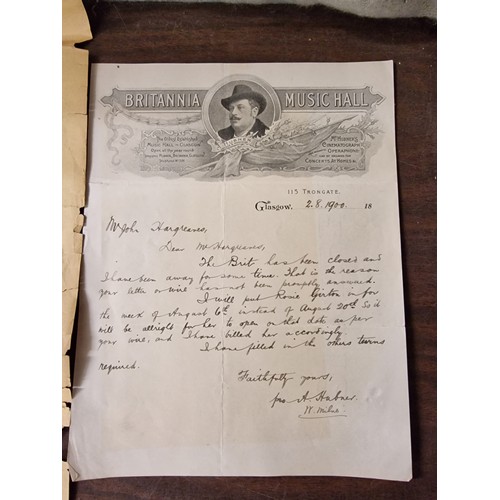 BRITANNIA MUSIC HALL
HUBNER'S
CINEMATOGRAPH
CONCERTS, AT HOMES, &c.
MUSIC HALL
115 TRONGATE,
Glasgow, 2.8.1900. 18
Mr John Hargreaves,
Dear Mr Hargreaves,
The Brit has been closed and
I have been away for some time. That is the reason
your letter or wire has not been promptly answered.
I will put Rosie Egerton in for
the week of August 6th instead of August 20th. So it
will be allright for her to open on that date as per
your wire, and I have billed her accordingly.
I have filled in the others turns
required.
Faithfully yours,
pro A. Hubner.
W. Milne